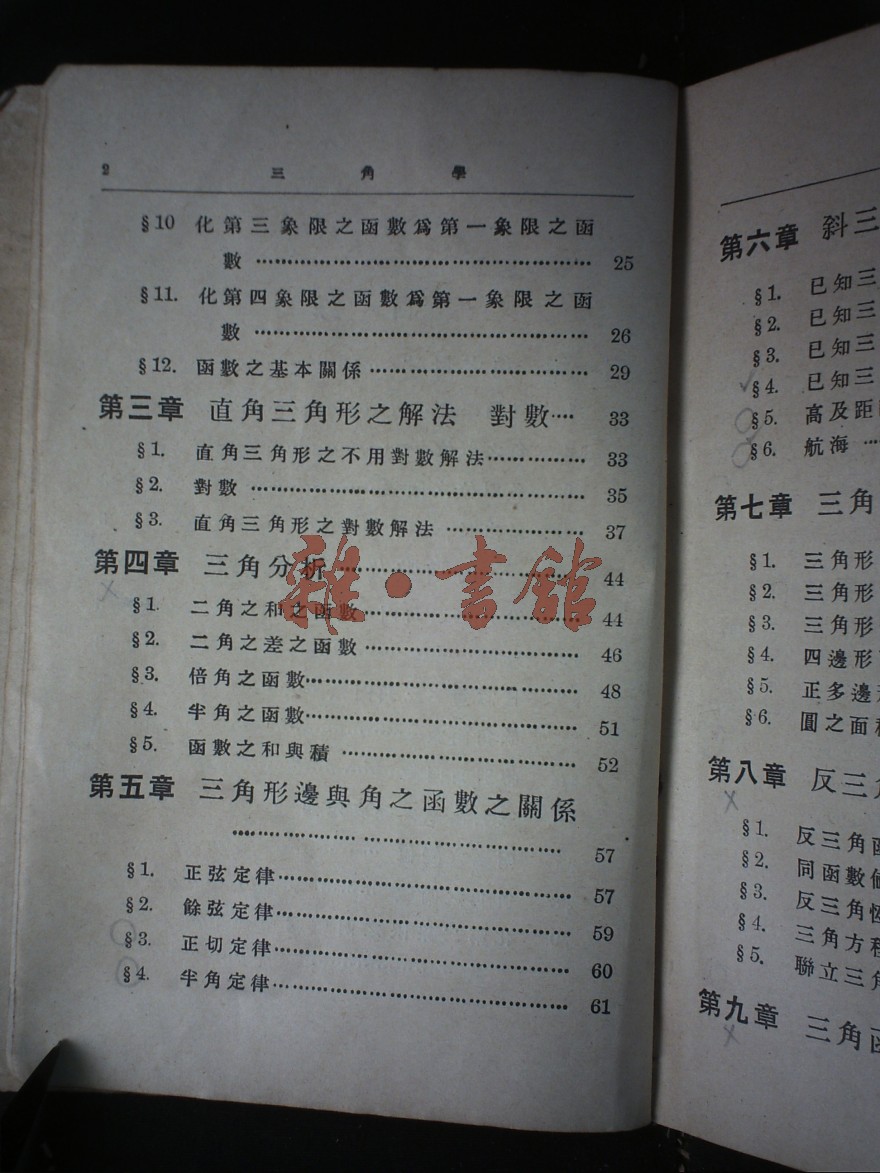 2 三角學
§10 化第三象限之函數爲第一象限之函
數 …… 25
§11. 化第四象限之函數爲第一象限之函
數 …… 26
§12. 函數之基本關係 …… 29
第三章 直角三角形之解法 對數 … 33
§1. 直角三角形之不用對數解法 …… 33
§2. 對數 …… 35
§3. 直角三角形之對數解法 …… 37
第四章 三角分析 …… 44
§1. 二角之和之函數 …… 44
§2. 二角之差之函數 …… 46
§3. 倍角之函數 …… 48
§4. 半角之函數 …… 51
§5. 函數之和與積 …… 52
第五章 三角形邊與角之函數之關係
…… 57
§1. 正弦定律 …… 57
§2. 餘弦定律 …… 59
§3. 正切定律 …… 60
§4. 半角定律 …… 61
雜·書館
第六章 斜三
§1. 已知三
§2. 已知三
§3. 已知三
§4. 已知三
§5. 高及距
§6. 航海 …
第七章 三角
§1. 三角形
§2. 三角形
§3. 三角形
§4. 四邊形
§5. 正多邊
§6. 圓之面
第八章 反三
§1. 反三角
§2. 同函數
§3. 反三角
§4. 三角方程
§5. 聯立三
第九章 三角